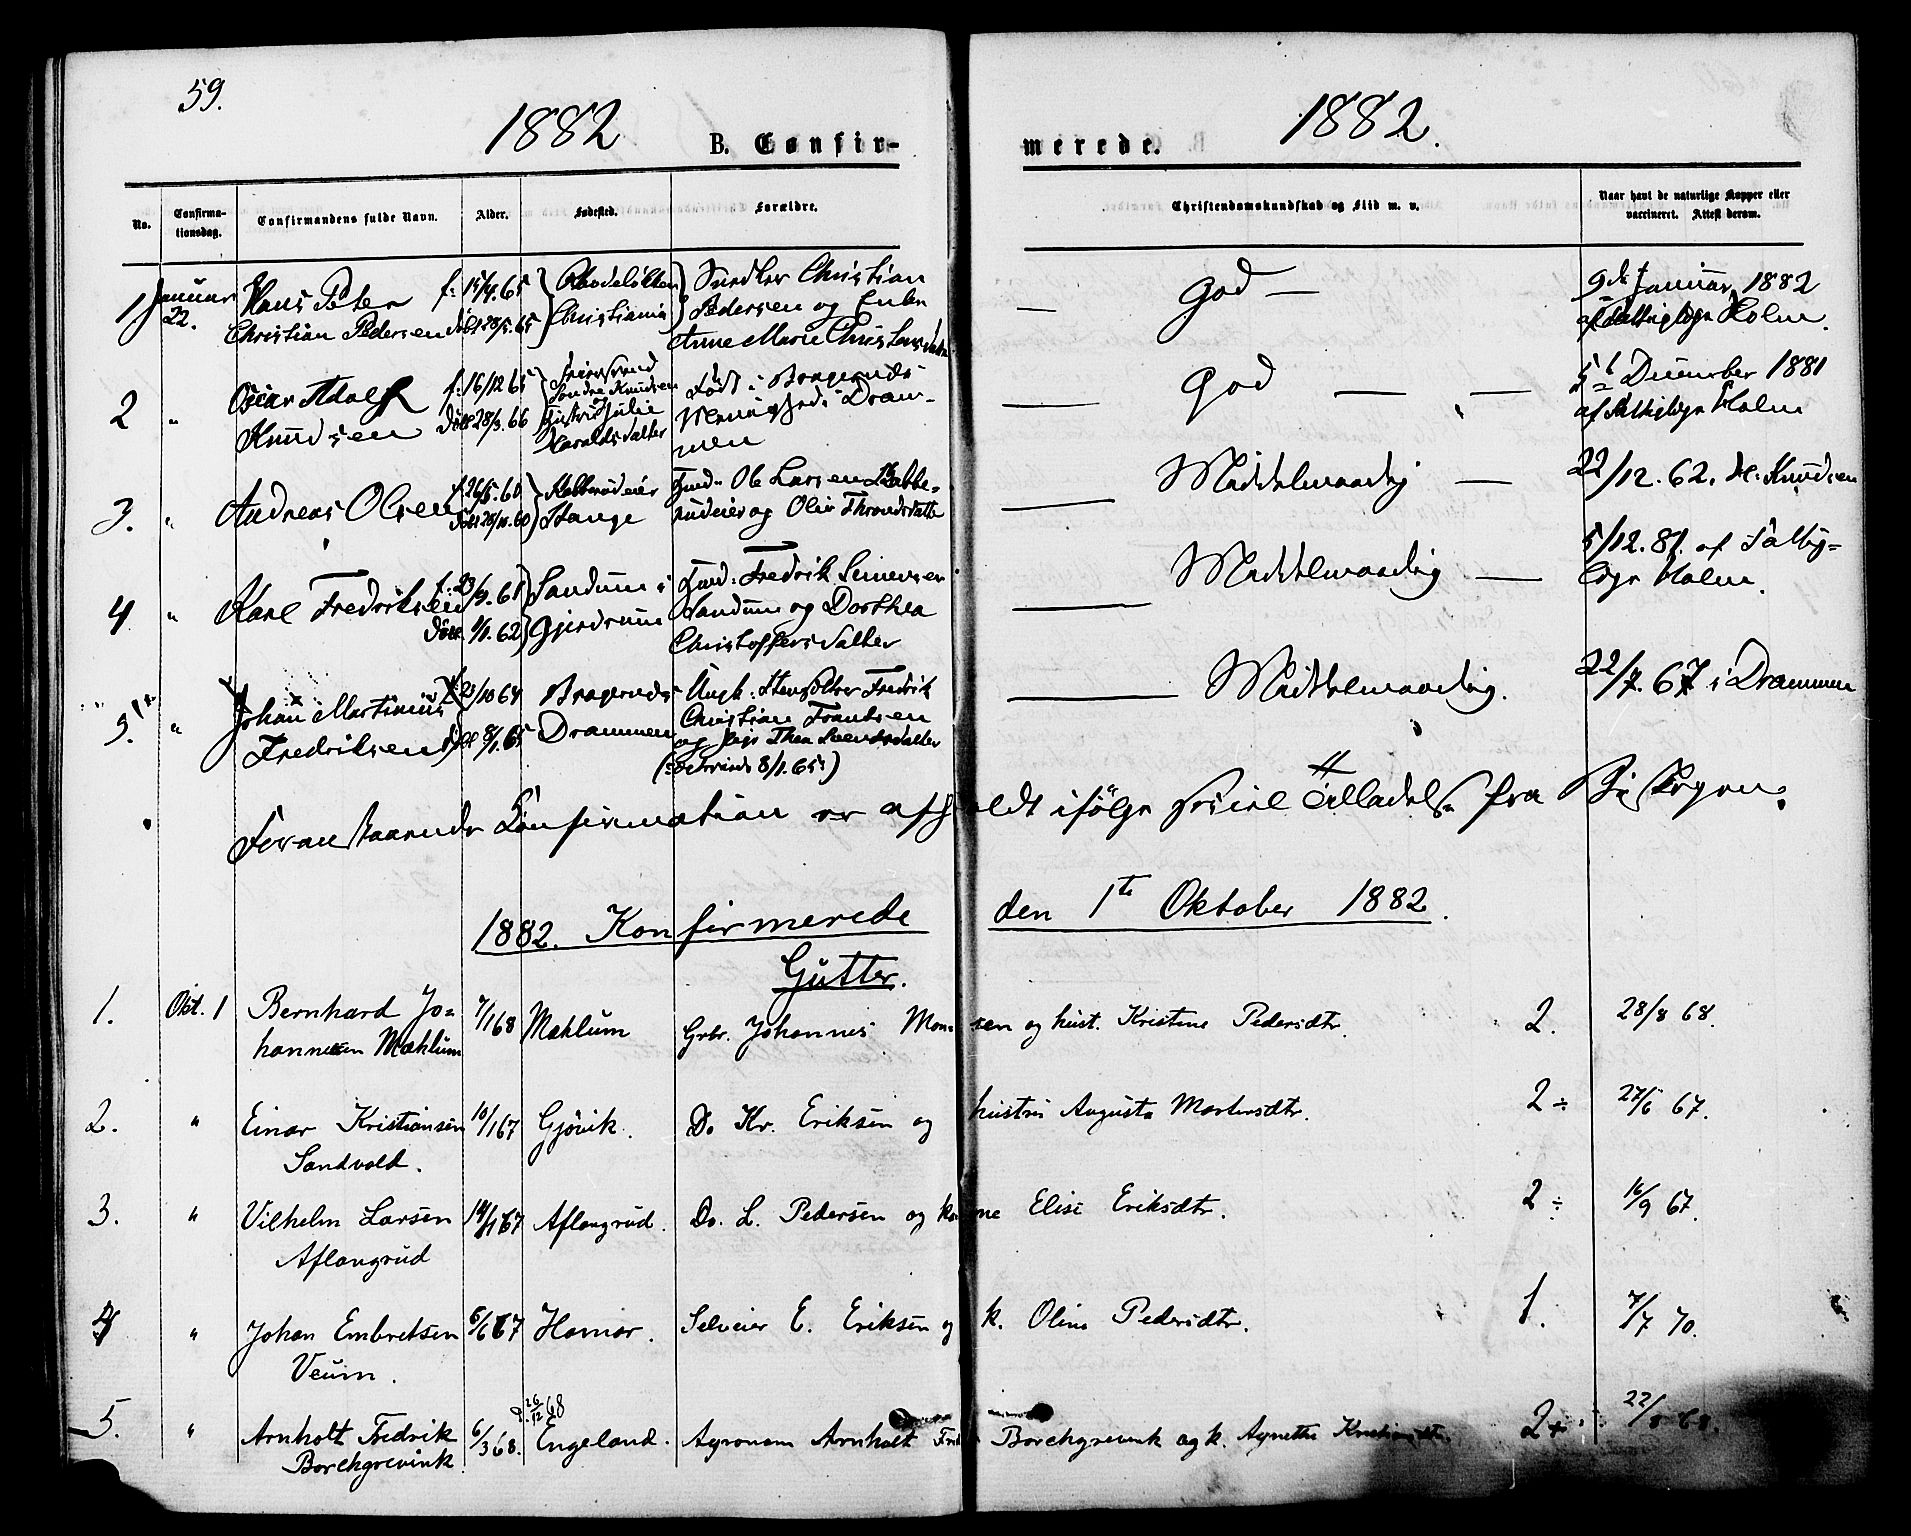 59.
1882 B. Confir- merede. 1882.
No. Confirma-tionsdag. Confirmandens fulde Navn. Alder. Fødested. Forældre. Christendomskundskab og Flid m. v. Naar havt de naturlige Kopper eller vaccineret. Attest derom.
1 Januar 22. Hans Peter f: 15/4.65 Christian — God — 9de Januar 1882
Christian Pedersen døbt 28/5.65 Christiania Pedersen og Enke af Holm.
Anne Marie
2 " Oscar Adolf f: 16/12 65 Født i Bragernes — God — — 5te December 1881
Knudsen døbt 28/3.66 Hustru Julie Menighed i Dram- af Holm
Haraldsdatter men
3. " Andreas Olsen f. 26/5.60 Huusm. Ole Larsen — Middelmaadig — 22/12.62. Kl. Knudsen
Døbt Stange og Oline Throndsdatter
4 " Karl Fredriksen f: 23/9.61 Sandum i Huusm: Fredrik Simensen — Middelmaadig — 5/12.81. af
Døbt 1/1.62 Gjerdrum Sandum og Dorthea Holm.
Christoffersdatter
5. " Johan Martinius 23/10 64 Bragernes Ungk: Fredrik — Middelmaadig. 22/7.67 i Drammen
Fredriksen døbt 8/1.65 Drammen Christian Frandsen
og Pige Thea Svendsdatter
Foranstaaende Konfirmation er afholdt ifølge speciel Tilladelse fra Biskopen.
1882. Konfirmerede den 1te Oktober 1882.
Gutter.
1. Okt. 1 Bernhard Jo- 7/1 68 Mæhlum Grbr. Johannes Monsen og hust. Kristine Pedersdtr. 2. 28/8 68.
hannesen Mæhlum
2. " Einar Kristiansen 10/1 67 Gjøvik. Do Kr. Eriksen og hustru Augusta Martinsdtr. 2 ÷ 27/6 67.
Sandvold.
3. " Vilhelm Larsen 14/1 67 Aflangrud. Do. L. Pedersen og kone Elise Eriksdtr. 2 ÷ 16/9 67.
Aflangrud
4 " Johan Embretsen 6/6 67 Hamar. Selveier E. Eriksen og k. Oline Pedersdtr. 1. 7/7 70.
Veum.
d. 26/12 68
5. " Arnholt Fredrik 6/3 68. Engeland. Agronom Arnholt Fredr. Borchgrevink og k. Agnethe Kristiansdtr. 2+ 22/8 68.
Borchgrevink